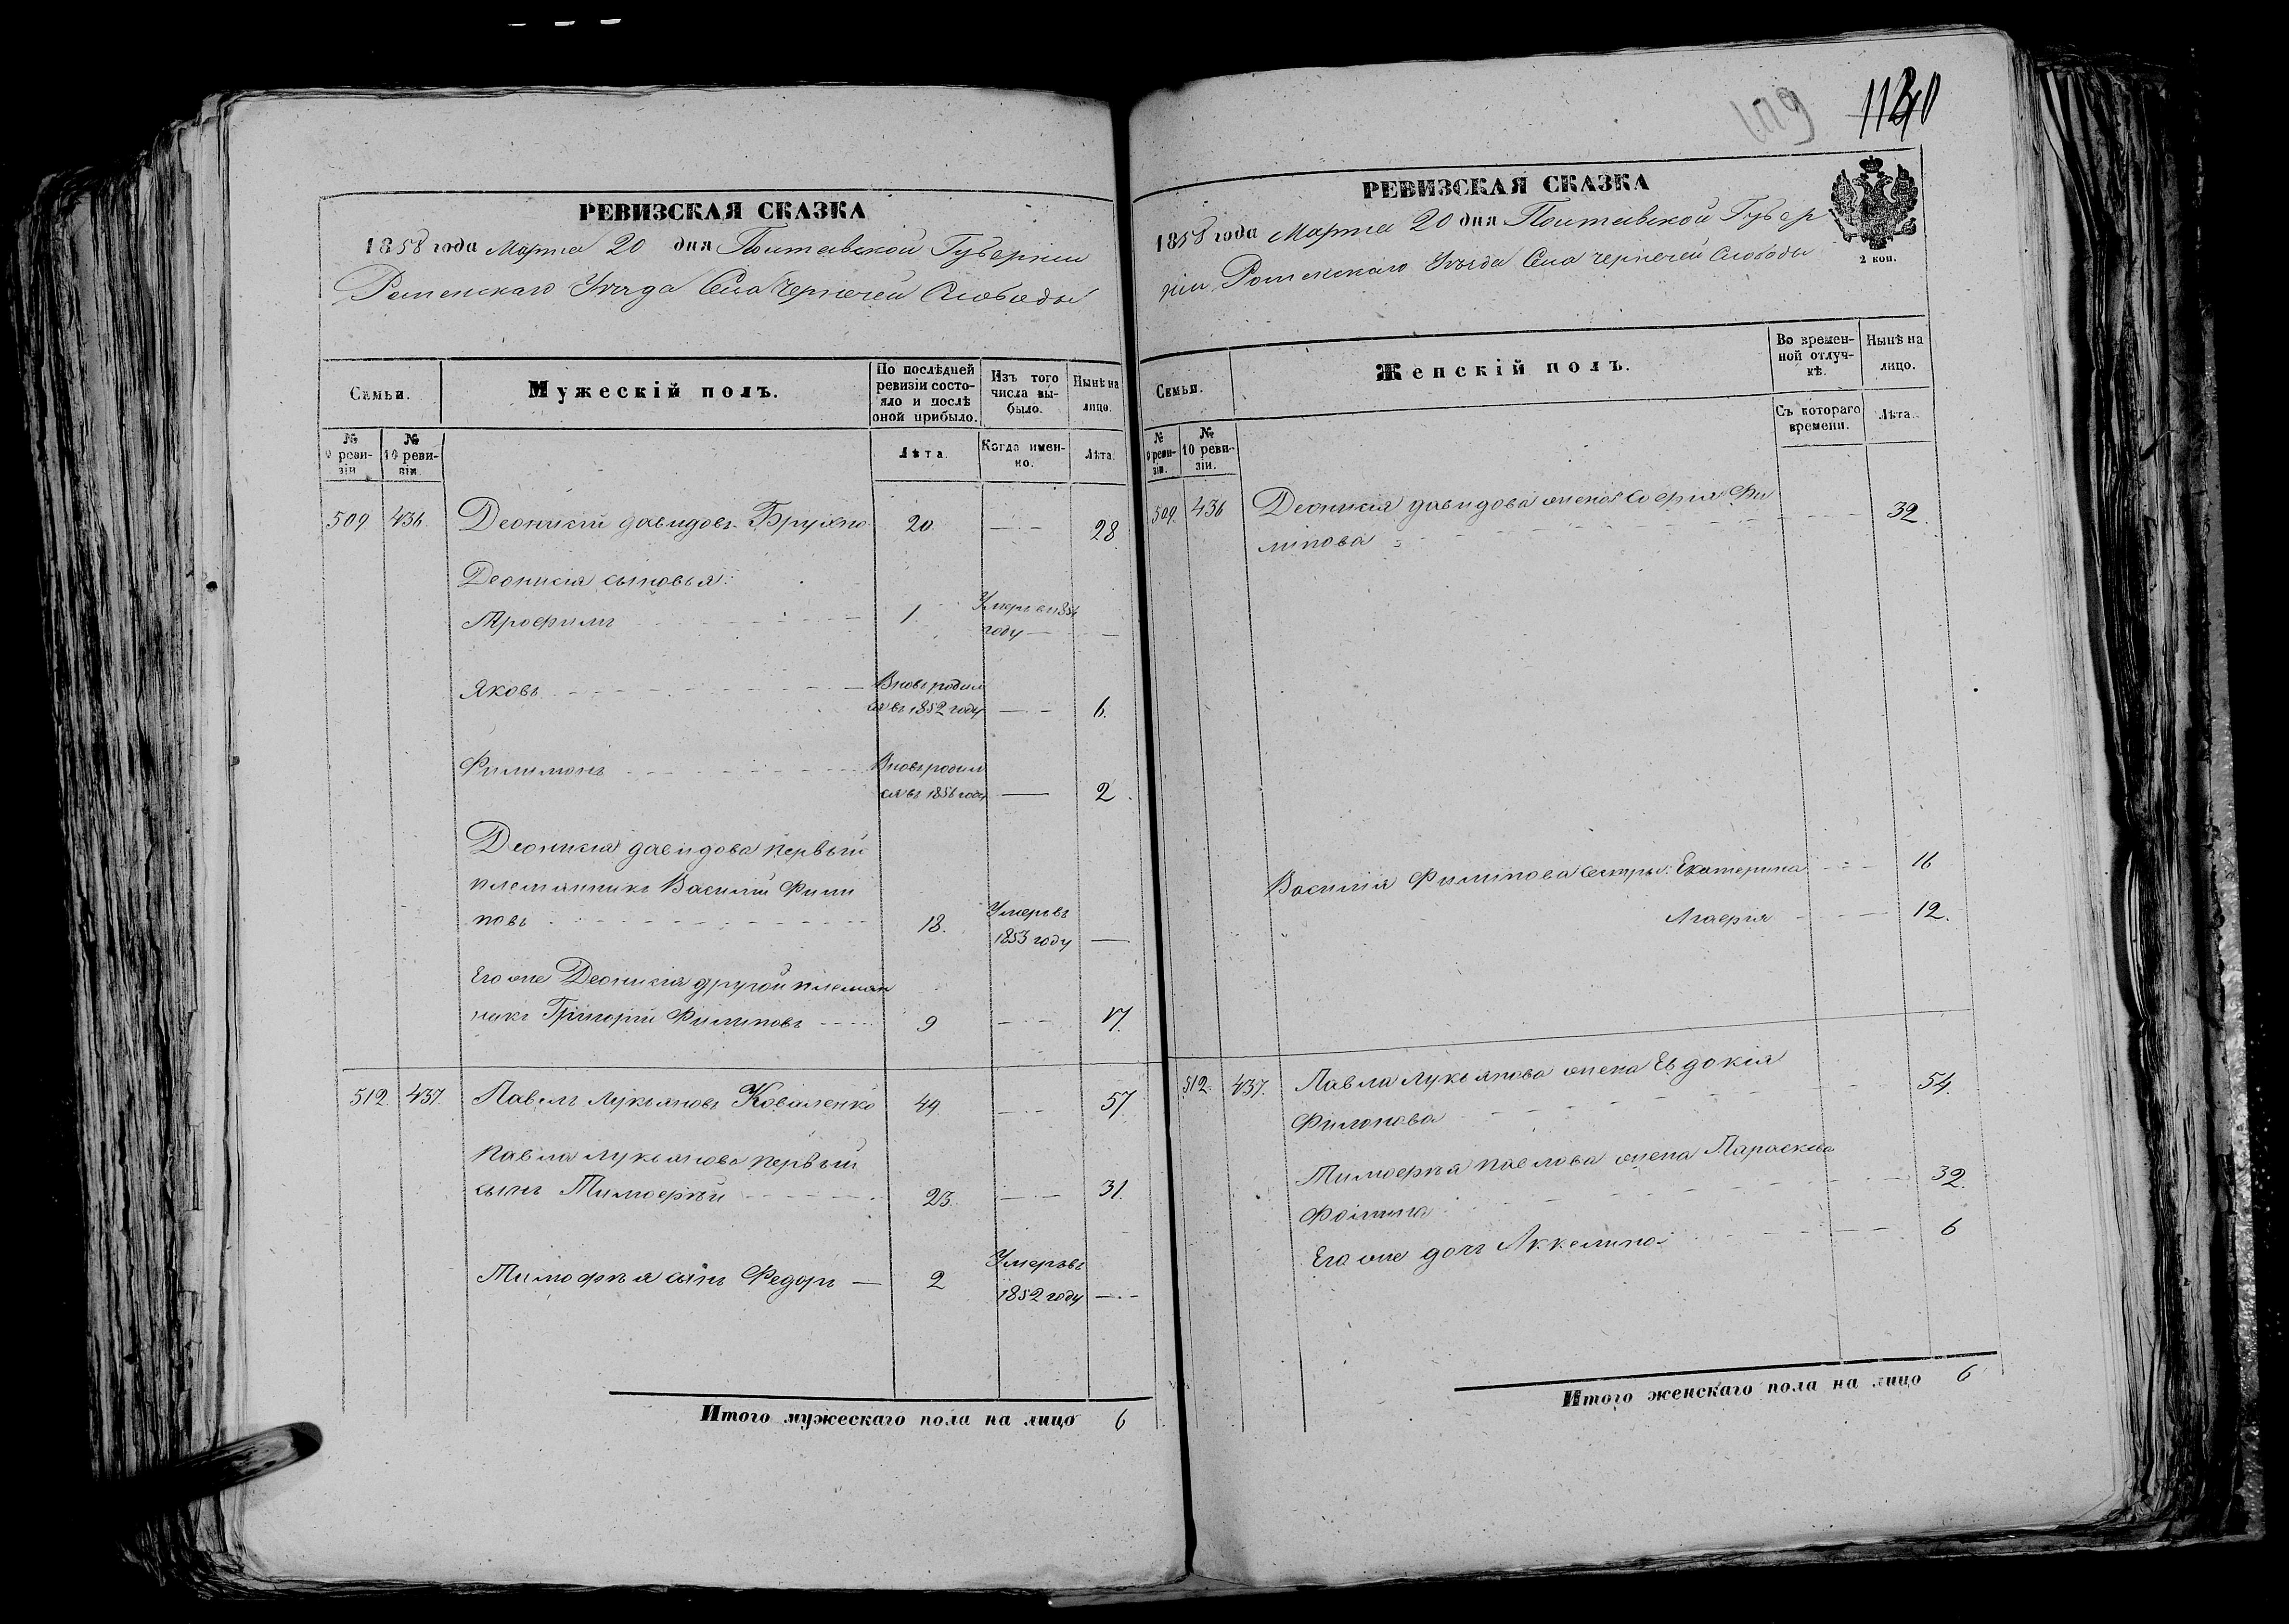 РЕВИЗСКАЯ СКАЗКА
1858 года Марта 20 дня Полтавской Губерніи
Роменскаго Уѣзда Села Чернечей Слободы
Семьи.
Мужескій полъ.
По послѣдней ревизіи состояло и послѣ оной прибыло.
Изъ того числа выбыло.
Нынѣ на лицо.
№ 9 ревизіи
№ 10 ревизіи.
Лѣта.
Когда именно.
Лѣта.
509 436. Деонисій давидовъ 20. 28
Деонисія сыновья:
Трофимъ 1. Умеръ въ 1856
году
Яковъ Вновь родил
ся въ 1852 году 6.
Филимонъ Вновь родил
ся въ 1856 году 2.
Деонисія давидова первый
племянникъ Василій Фили
повъ 18. Умеръ въ
1853 году
Его же Деонисія другой племян
никъ Григорій Филиповъ 9 17.
512. 437. Павелъ Лукьяновъ Коваленко 49. 57
Павла Лукьянова первый
сынъ Тимофѣй 23. 31.
Тимофѣя сынъ Федоръ 2 Умеръ въ
1852 году
Итого мужескаго пола на лицо 6
1119 1140
РЕВИЗСКАЯ СКАЗКА
1858 года Марта 20 дня Полтавской Губер
ніи Роменскаго Уѣзда Села Чернечей Слободы
2 коп.
Семьи.
Женскій полъ.
Во временной отлучкѣ.
Нынѣ на лицо.
№ 9 ревизіи.
№ 10 ревизіи.
Съ котораго времени.
Лѣта.
509. 436 Деонисія давидова жена Софія Фи
липова 32.
Василія Филипова сестры: Екатерина 16
Агафія 12.
512. 437. Павла Лукьянова жена Евдокія
Филонова 54.
Тимофѣя павлова жена Параскева
Фомина 32.
Его же дочь Аккелина 6
Итого женскаго пола на лицо 6